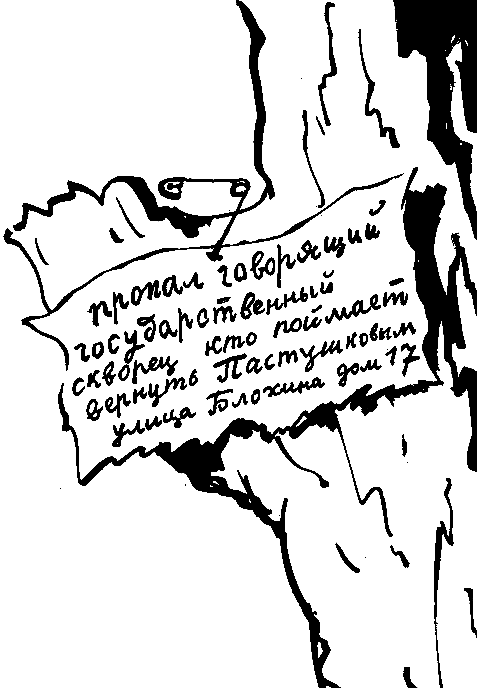 пропал говорящий
государственный
скворец кто поймает
вернуть Пастушковым
улица Блохина дом 17